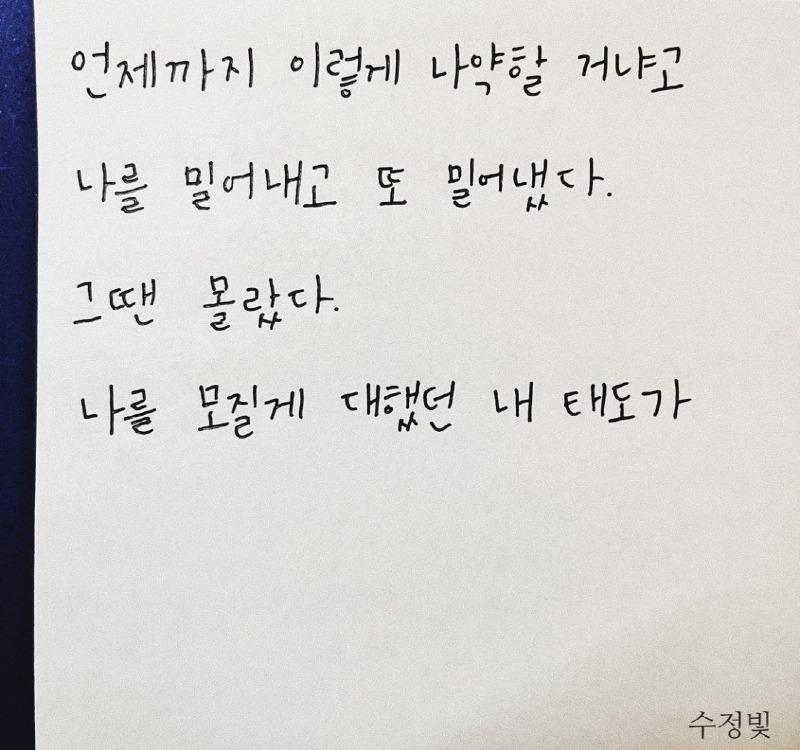 언제까지 이렇게 나약할 거냐고
나를 밀어내고 또 밀어냈다.
그땐 몰랐다.
나를 모질게 대했던 내 태도가
수정빛